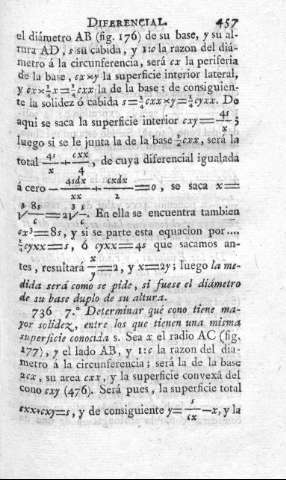 DIFERENCIAL. 457
el diámetro AB (fig. 176) de su base, y su al-
tura AD, s su cabida, y 1:c la razon del diá-
metro á la circunferencia, será cx la periferia
de la base, cx×y la superficie interior lateral,
y cx×¼x=¼cxx la de la base: de consiguien-
te la solidez ó cabida s=¼cxx×y=¼cyxx. De
aqui se saca la superficie interior cxy=4s/x;
luego si se le junta la de la base ¼cxx, será la
total 4s/x+cxx/4, de cuya diferencial igualada
á cero —4sdx/xx+cxdx/2=0, se saca x=
∛8s/c=2∛s/c. En ella se encuentra tambien
cx³=8s, y si se parte esta equacion por....
¼cyxx=s, ó cyxx=4s que sacamos an-
tes, resultará x/y=2, y x=2y; luego la me-
dida será como se pide, si fuese el diámetro
de su base duplo de su altura.
736 7.° Determinar qué cono tiene ma-
yor solidez, entre los que tienen una misma
superficie conocida s. Sea x el radio AC (fig.
177), y el lado AB, y 1:c la razon del diá-
metro á la circunferencia; será la de la base
2cx, su area cxx, y la superficie convexâ del
cono cxy (476). Será pues, la superficie total
cxx+cxy=s, y de consiguiente y=s/cx—x, y la